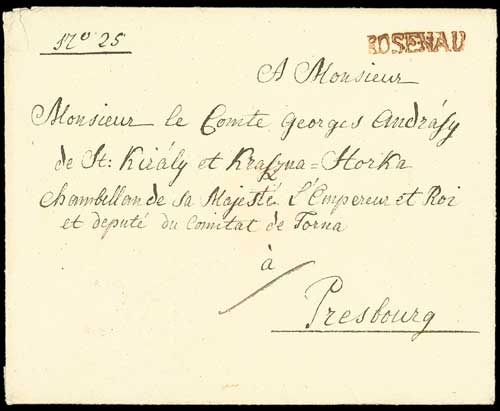 Nº 25
ROSENAU
A Monsieur
Monsieur le Comte Georges Andrásy
de St: Király et Kraszna=Horka
Chambellan de sa Majesté L'Empereur et Roi
et deputé du Comitat de Torna
à
Presbourg